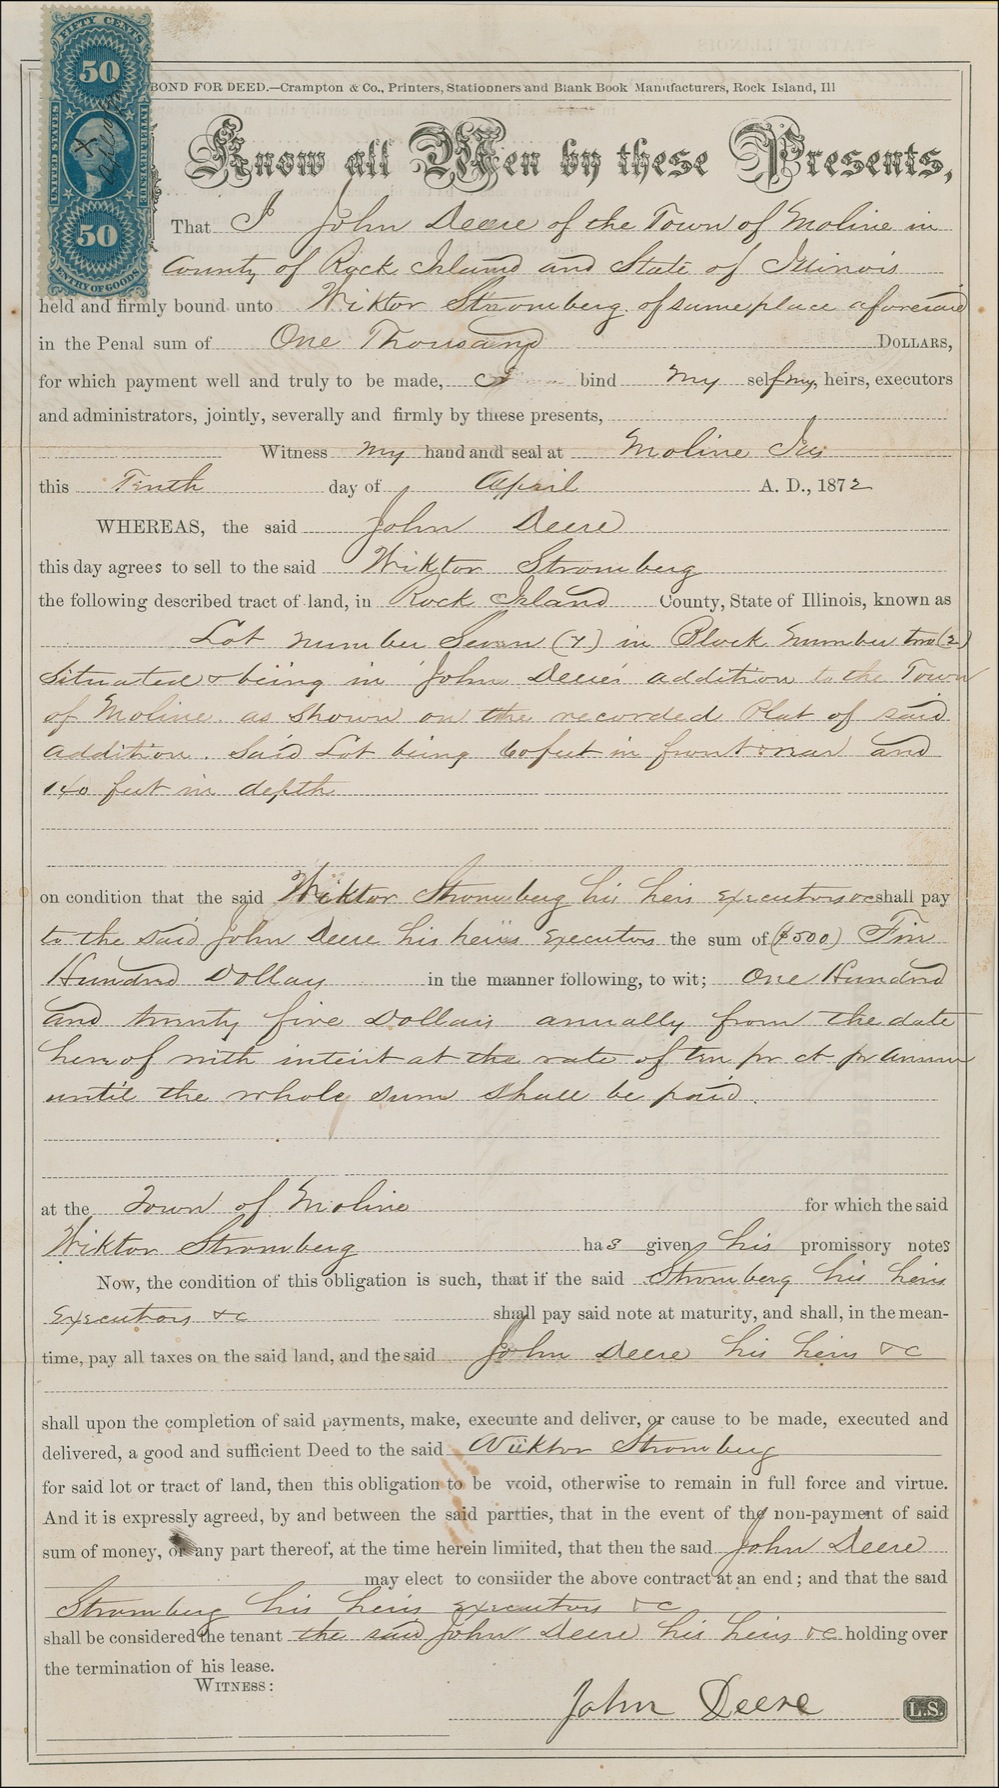 FIFTY CENTS
50
UNITED STATES
INTER. REVENUE
50
ENTRY OF GOODS
BOND FOR DEED.—Crampton & Co., Printers, Stationners and Blank Book Manufacturers, Rock Island, Ill
Know all Men by these Presents,
That I John Deere of the Town of Moline in
County of Rock Island and State of Illinois
held and firmly bound unto Wiktor Stromberg of same place aforesaid
in the Penal sum of One Thousand DOLLARS,
for which payment well and truly to be made, I bind my self my, heirs, executors
and administrators, jointly, severally and firmly by these presents,
Witness my hand and seal at Moline Ills
this Tenth day of April A. D., 1872
WHEREAS, the said John Deere
this day agrees to sell to the said Wiktor Stromberg
the following described tract of land, in Rock Island County, State of Illinois, known as
Lot number Seven (7) in Block Number two (2)
Situated & being in John Deere's addition to the Town
of Moline. as Shown on the recorded Plat of said
addition. Said Lot being 60 feet in front & rear and
140 feet in depth
on condition that the said Wiktor Stromberg his heirs Executors &c shall pay
to the said John Deere his heirs Executors the sum of ($500) Five
Hundred Dollars in the manner following, to wit; One Hundred
and twenty five Dollars anually from the date
hereof with interest at the rate of ten pr ct pr Annum
until the whole sum shall be paid.
at the Town of Moline for which the said
Wiktor Stromberg has given his promissory notes
Now, the condition of this obligation is such, that if the said Stromberg his heirs
Executors &c shall pay said note at maturity, and shall, in the mean-
time, pay all taxes on the said land, and the said John Deere his heirs &c
shall upon the completion of said payments, make, execute and deliver, or cause to be made, executed and
delivered, a good and sufficient Deed to the said Wiktor Stromberg
for said lot or tract of land, then this obligation to be void, otherwise to remain in full force and virtue.
And it is expressly agreed, by and between the said parties, that in the event of the non-payment of said
sum of money, or any part thereof, at the time herein limited, that then the said John Deere
may elect to consider the above contract at an end; and that the said
Stromberg his heirs executors &c
shall be considered the tenant the said John Deere his heirs &c holding over
the termination of his lease.
WITNESS:
John Deere L.S.